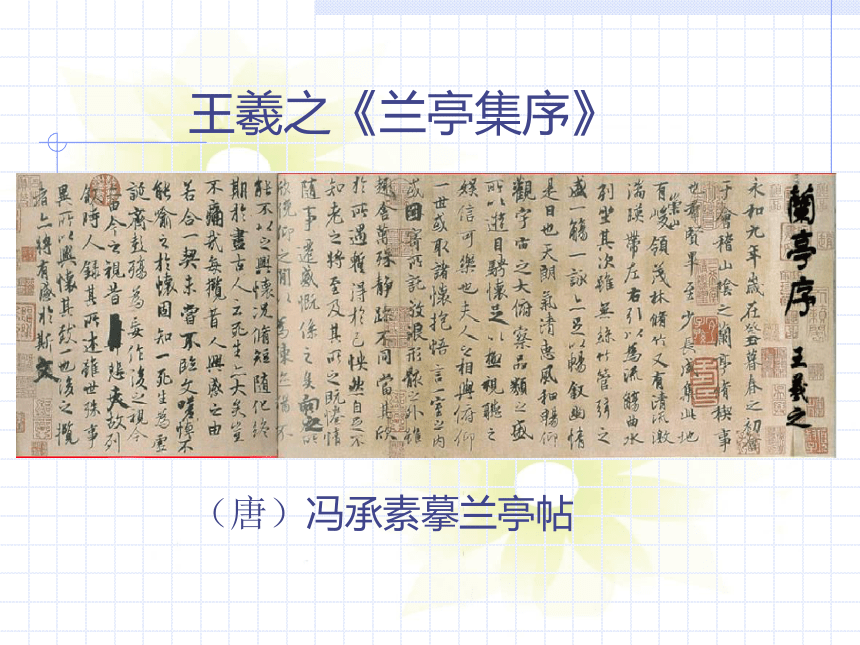 王羲之《兰亭集序》
蘭亭序 王羲之
永和九年歲在癸丑暮春之初會
于會稽山陰之蘭亭脩稧事
也羣賢畢至少長咸集此地
有崇山峻領茂林脩竹又有清流激
湍暎帶左右引以為流觴曲水
列坐其次雖無絲竹管弦之
盛一觴一詠亦足以暢叙幽情
是日也天朗氣清惠風和暢仰
觀宇宙之大俯察品類之盛
所以遊目騁懷足以極視聽之
娛信可樂也夫人之相與俯仰
一世或取諸懷抱悟言一室之內
或因寄所託放浪形骸之外雖
趣舍萬殊靜躁不同當其欣
於所遇蹔得於己怏然自足不
知老之將至及其所之既惓情
隨事遷感慨係之矣向之所
欣俛仰之間以為陳迹猶不
能不以之興懷況脩短隨化終
期於盡古人云死生亦大矣豈
不痛哉每攬昔人興感之由
若合一契未嘗不臨文嗟悼不
能喻之於懷固知一死生為虛
誕齊彭殤為妄作後之視今
亦由今之視昔 悲夫故列
敘時人錄其所述雖世殊事
異所以興懷其致一也後之攬
者亦將有感於斯文
（唐）冯承素摹兰亭帖